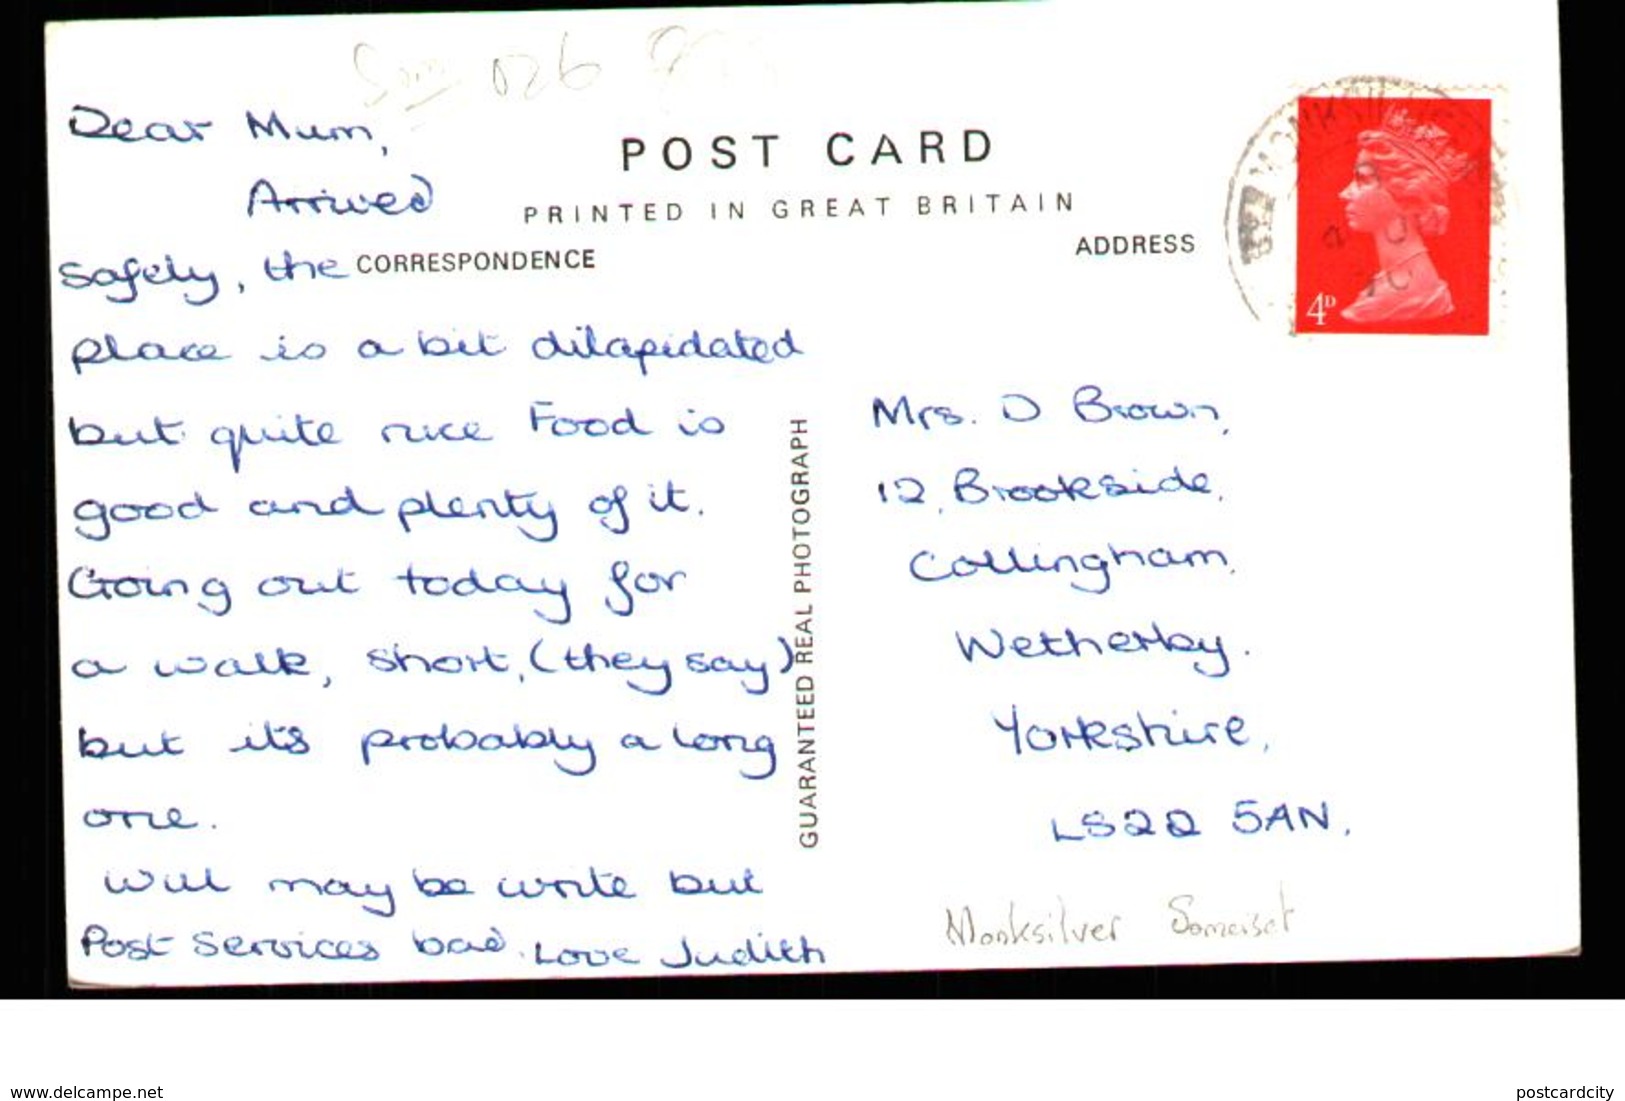 Som 026
Dear Mum,
Arrived
safely, the
place is a bit dilapidated
but quite nice Food is
good and plenty of it.
Going out today for
a walk, short, (they say)
but it's probably a long
one.
Will may be write but
Post Services bad. Love Judith
POST CARD
PRINTED IN GREAT BRITAIN
CORRESPONDENCE
ADDRESS
GUARANTEED REAL PHOTOGRAPH
4D
Mrs. D Brown,
12, Brookside,
Collingham,
Wetherby.
Yorkshire,
LS22 5AN.
Monksilver Somerset
www.delcampe.net
postcardcity